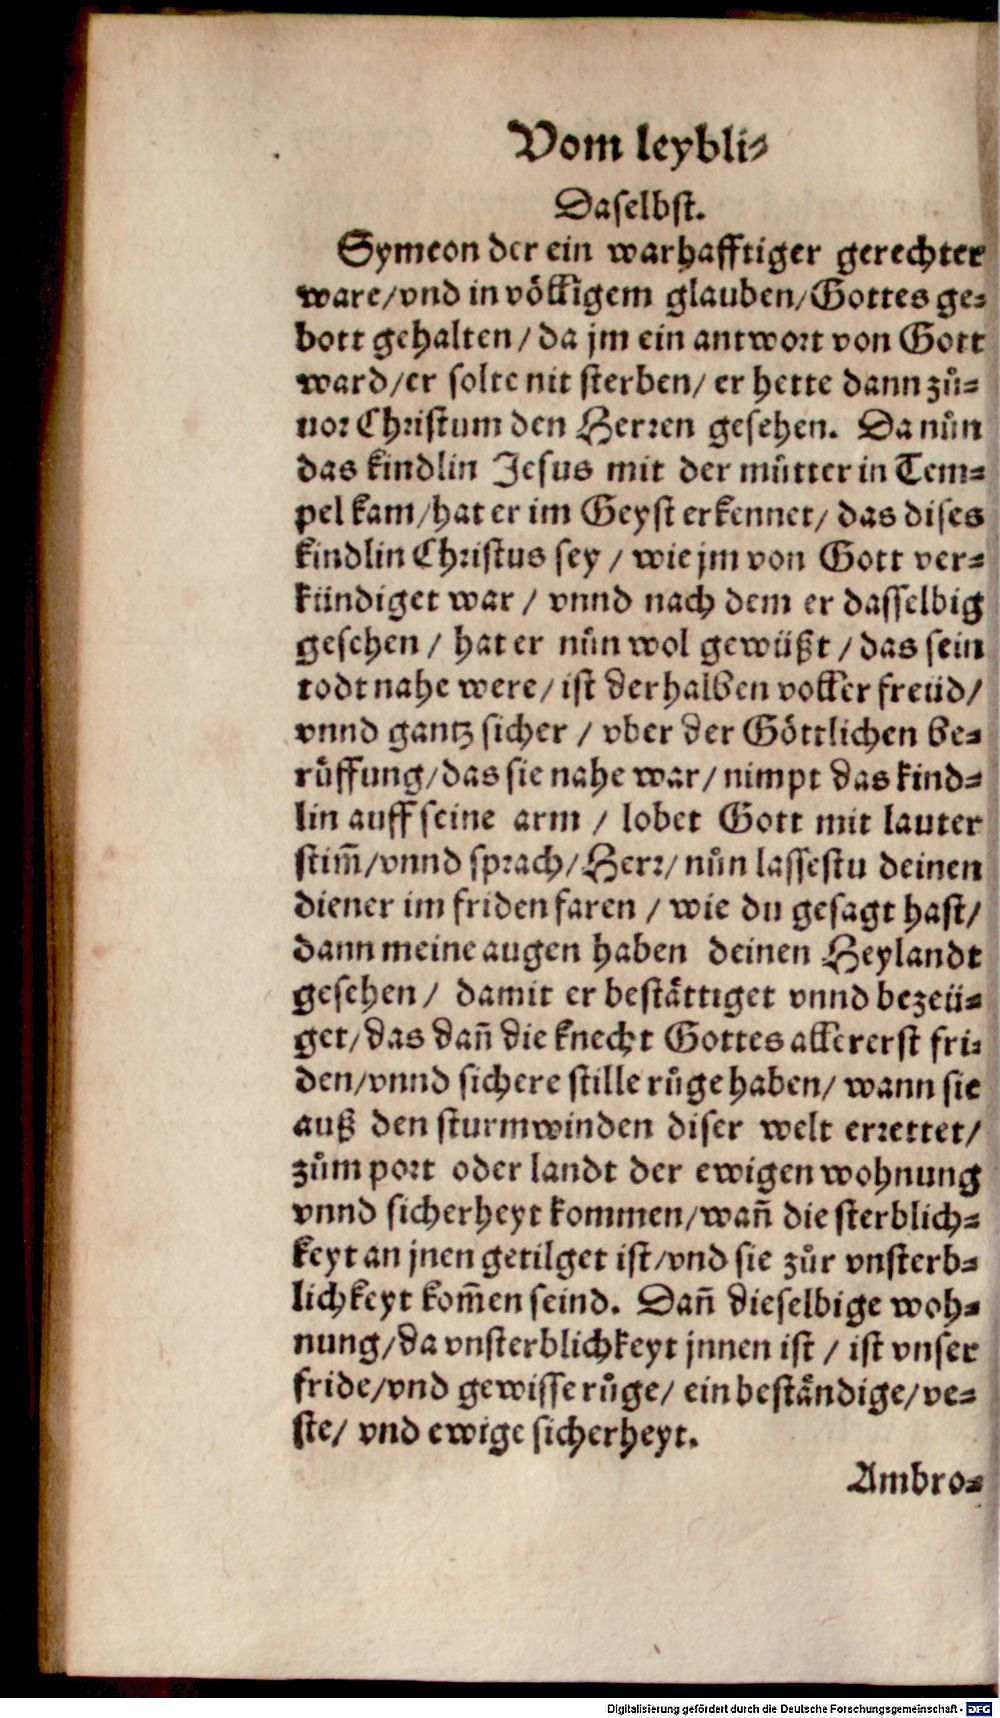 Vom leybli⸗
Daselbst.
Symeon der ein warhafftiger gerechter
ware/vnd in völligem glauben/Gottes ge⸗
bott gehalten/da jm ein antwort von Gott
ward/er solte nit sterben/er hette dann zů⸗
uor Christum den Herren gesehen. Da nůn
das kindlin Jesus mit der můtter in Tem⸗
pel kam/hat er im Geyst erkennet/das dises
kindlin Christus sey/wie jm von Gott ver⸗
kündiget war/vnnd nach dem er dasselbig
gesehen/hat er nůn wol gewüßt/das sein
todt nahe were/ist derhalben voller freüd/
vnnd gantz sicher/vber der Göttlichen be⸗
růffung/das sie nahe war/nimpt das kind⸗
lin auff seine arm/lobet Gott mit lauter
stim̃/vnnd sprach/Herr/nůn lassestu deinen
diener im friden faren/wie du gesagt hast/
dann meine augen haben deinen Heylandt
gesehen/damit er bestättiget vnnd bezeü⸗
get/das dañ die knecht Gottes allererst fri⸗
den/vnnd sichere stille růge haben/wann sie
auß den sturmwinden diser welt errettet/
zům port oder landt der ewigen wohnung
vnnd sicherheyt kommen/wañ die sterblich⸗
keyt an jnen getilget ist/vnd sie zůr vnsterb⸗
lichkeyt kom̃en seind. Dañ dieselbige woh⸗
nung/da vnsterblichkeyt jnnen ist/ist vnser
fride/vnd gewisse růge/ein beständige/ve⸗
ste/vnd ewige sicherheyt.
Ambro⸗
Digitalisierung gefördert durch die Deutsche Forschungsgemeinschaft - DFG